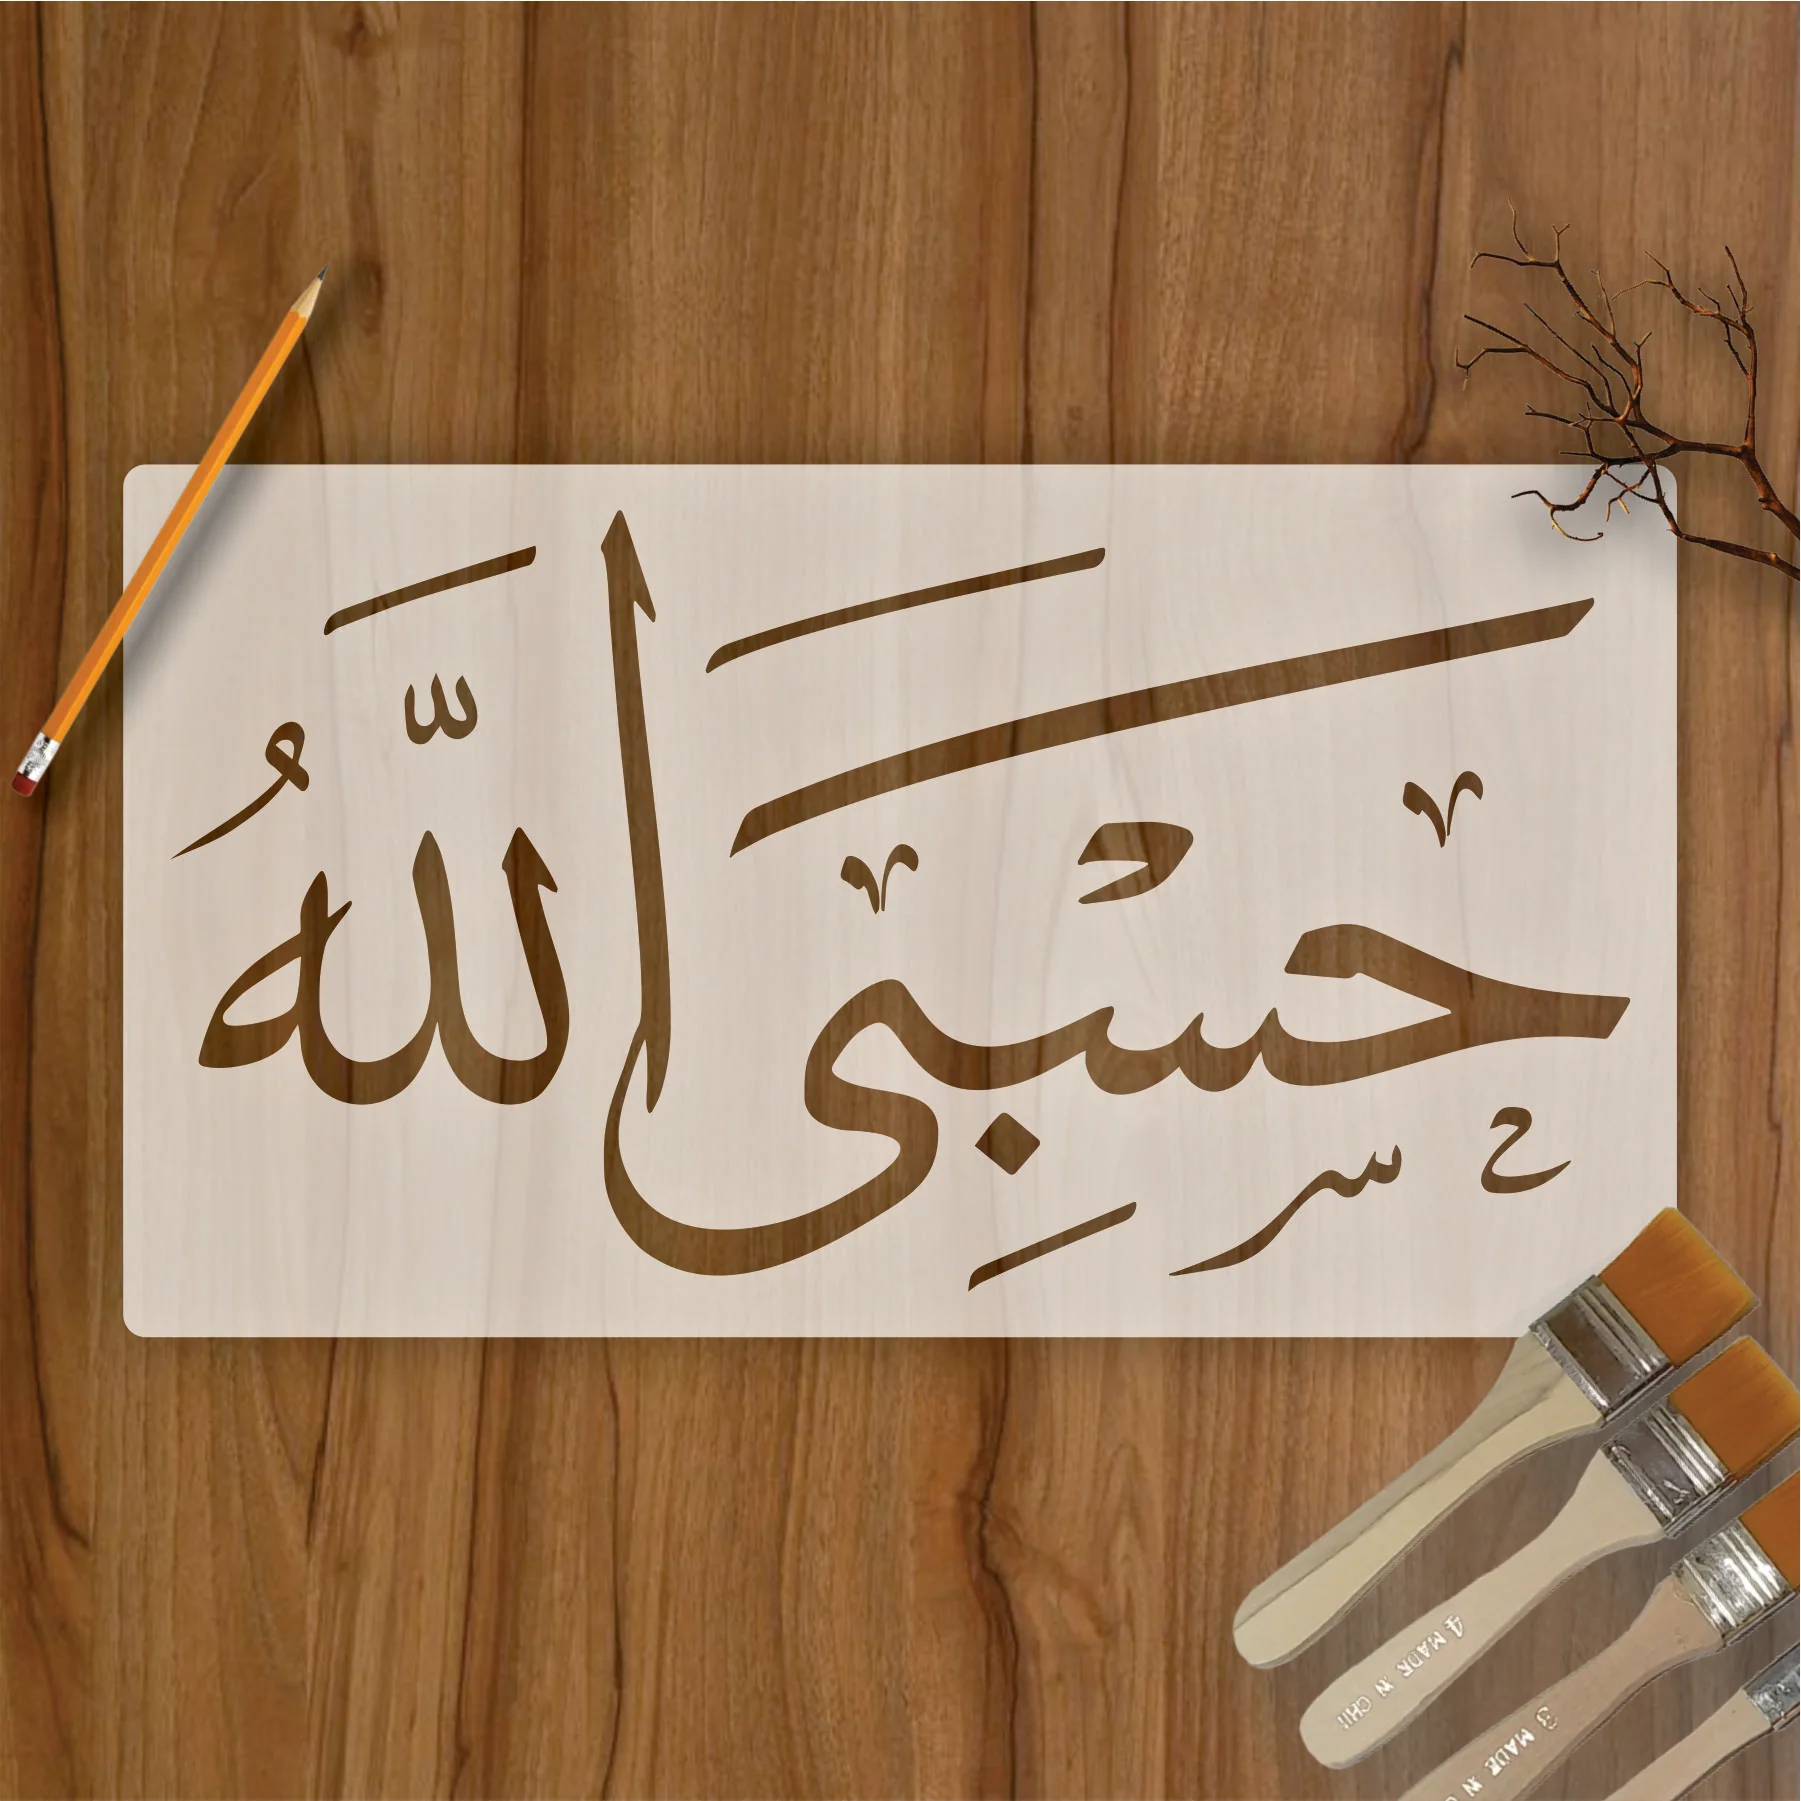 حَسْبِيَ اللَّهُ
4 MADE IN CHI
3 MADE IN